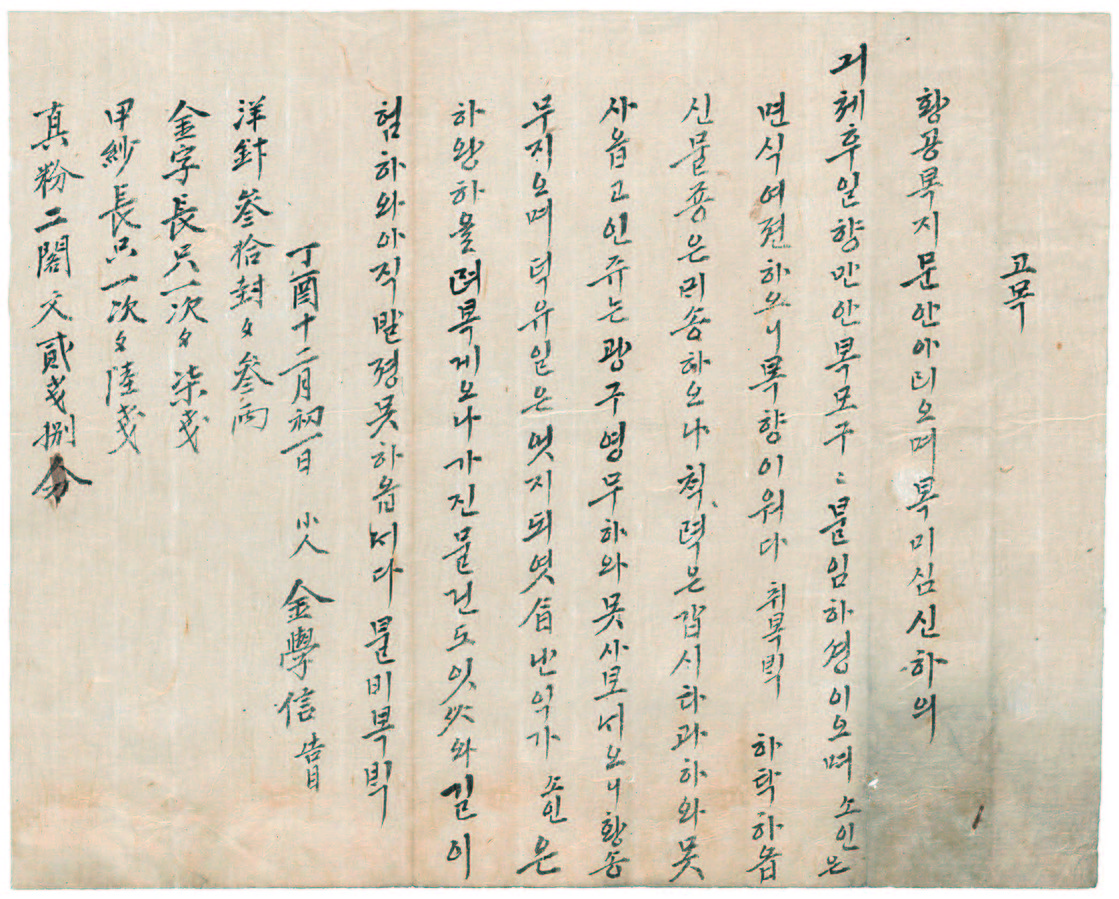 고목
황공복지문안아뢰오며 복미심신하의
긔체후일향만안복모구〻믈임하셩이오며 소인은
면식여젼하오니 복향이워다 취복븩 하탁하옵
신물죵은 미송하오나 척녁은 갑시하과하와 못
사옵고 인쥬는 광구영무하와 못사보서오니 황송
무지오며 덕유일은 엇지되엿습난익가 소인은
하왕하올 녁복게오나 가진물건도잇삿와 길이
험하와 아직발졍못하옵서다 믈비복븩
丁酉十二月初一日 小人 金學信 告目
洋針參拾封文參兩
金字長只一次文柒戔
甲紗長只一次文陸戔
真粉二閤文貳戔捌分